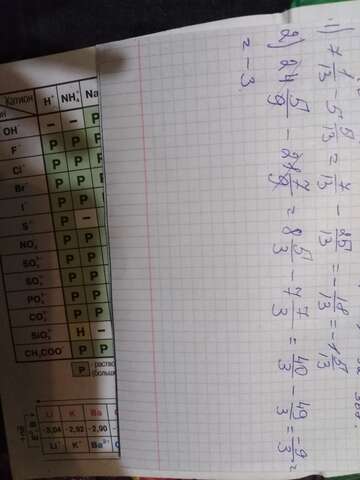 1) 7 1/13 - 5 5/13 = 7/13 - 25/13 = -18/13 = -1 5/13
2) 24 5/9 - 21 7/9 = 8 5/3 - 7 7/3 = 40/3 - 49/3 = -9/3 =
= -3.
Катион H⁺ NH₄⁺ Na
OH⁻ – – P
F⁻ P P P
Cl⁻ P P P
Br⁻ P P
I⁻ P P P
S²⁻ P –
NO₃⁻ P P P
SO₃²⁻ P P P
SO₄²⁻ P P P
PO₄³⁻ P P P
CO₃²⁻ P P P
SiO₃²⁻ H –
CH₃COO⁻ P P P
P - раство
(больш
Li K Ba
-3,04 -2,92 -2,90
Li⁺ K⁺ Ba²⁺